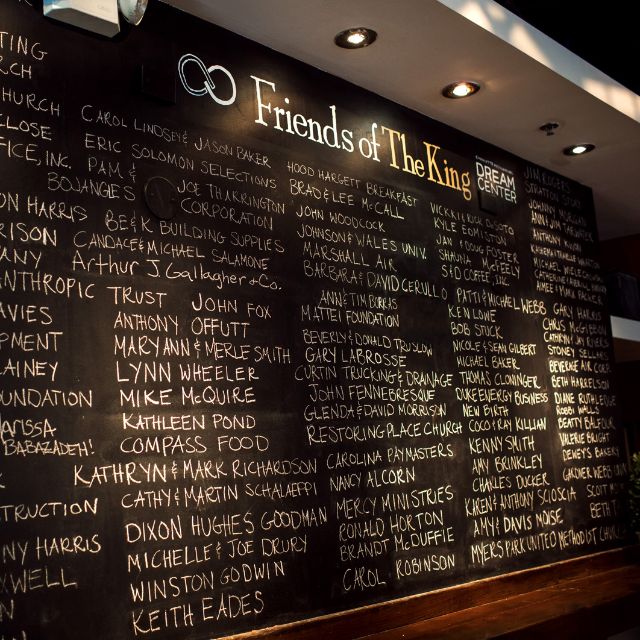 Friends of The King
DREAM
CENTER
TING
RCH
HURCH
CLOSE
FICE, INC.
ON HARRIS
RISON
ANY
ANTHROPIC TRUST
AVIES
PMENT
LAINEY
UNDATION
ARISSA
BABAZADEH!
TRUCTION
NY HARRIS
XWELL
CAROL LINDSEY & JASON BAKER
ERIC SOLOMON SELECTIONS
PAM &
BOJANGLES
JOE THARRINGTON
CORPORATION
BE&K BUILDING SUPPLIES
CANDACE & MICHAEL SALAMONE
Arthur J Gallagher & Co.
JOHN FOX
ANTHONY OFFUTT
MARY ANN & MERLE SMITH
LYNN WHEELER
MIKE McQUIRE
KATHLEEN POND
COMPASS FOOD
KATHRYN & MARK RICHARDSON
CATHY & MARTIN SCHALAEPPI
DIXON HUGHES GOODMAN
MICHELLE & JOE DRURY
WINSTON GODWIN
KEITH EADES
HOOD HARGETT BREAKFAST
BRAD & LEE McCALL
JOHN WOODCOCK
JOHNSON & WALES UNIV.
MARSHALL AIR
BARBARA & DAVID CERULLO
ANN & TIM
MATTEI FOUNDATION
BEVERLY & DONALD TRUSLOW
GARY LABROSSE
CURTIN TRUCKING & DRAINAGE
JOHN FENNEBRESQUE
GLENDA & DAVID MORRISON
RESTORING PLACE CHURCH
CAROLINA PAYMASTERS
NANCY ALCORN
MERCY MINISTRIES
RONALD HORTON
BRANDT McDUFFIE
CAROL ROBINSON
KYLE EDMISTON
JAN & DOUG FOSTER
SHAUNA McFEELY
S&D COFFEE, INC.
PATTI & MICHAEL WEBB
KEN LOWE
BOB STUCK
NICOLE & SEAN GILBERT
MICHAEL BAKER
THOMAS CLONINGER
DUKE ENERGY BUSINESS
NEW BIRTH
COCO & RAY KILLIAN
KENNY SMITH
AMY BRINKLEY
CHARLES DUCKER
KAREN & ANTHONY SCIOSCIA
AMY & DAVIS MOISE
MYERS PARK UNITED METHODIST CHURCH
JIM ROGERS
STRATTON STORY
GARY HARRIS
CHRIS McGIBBON
STONEY SELLARS
BEVERAGE AIR CORP.
BETH HARRELSON
DIANE RUTHLEDGE
ROBBI WALLS
BEATTY BALFOUR
VALERIE BRIGHT
DEWEY'S BAKERY
GARDNER WEBB
SCOTT
BETH T